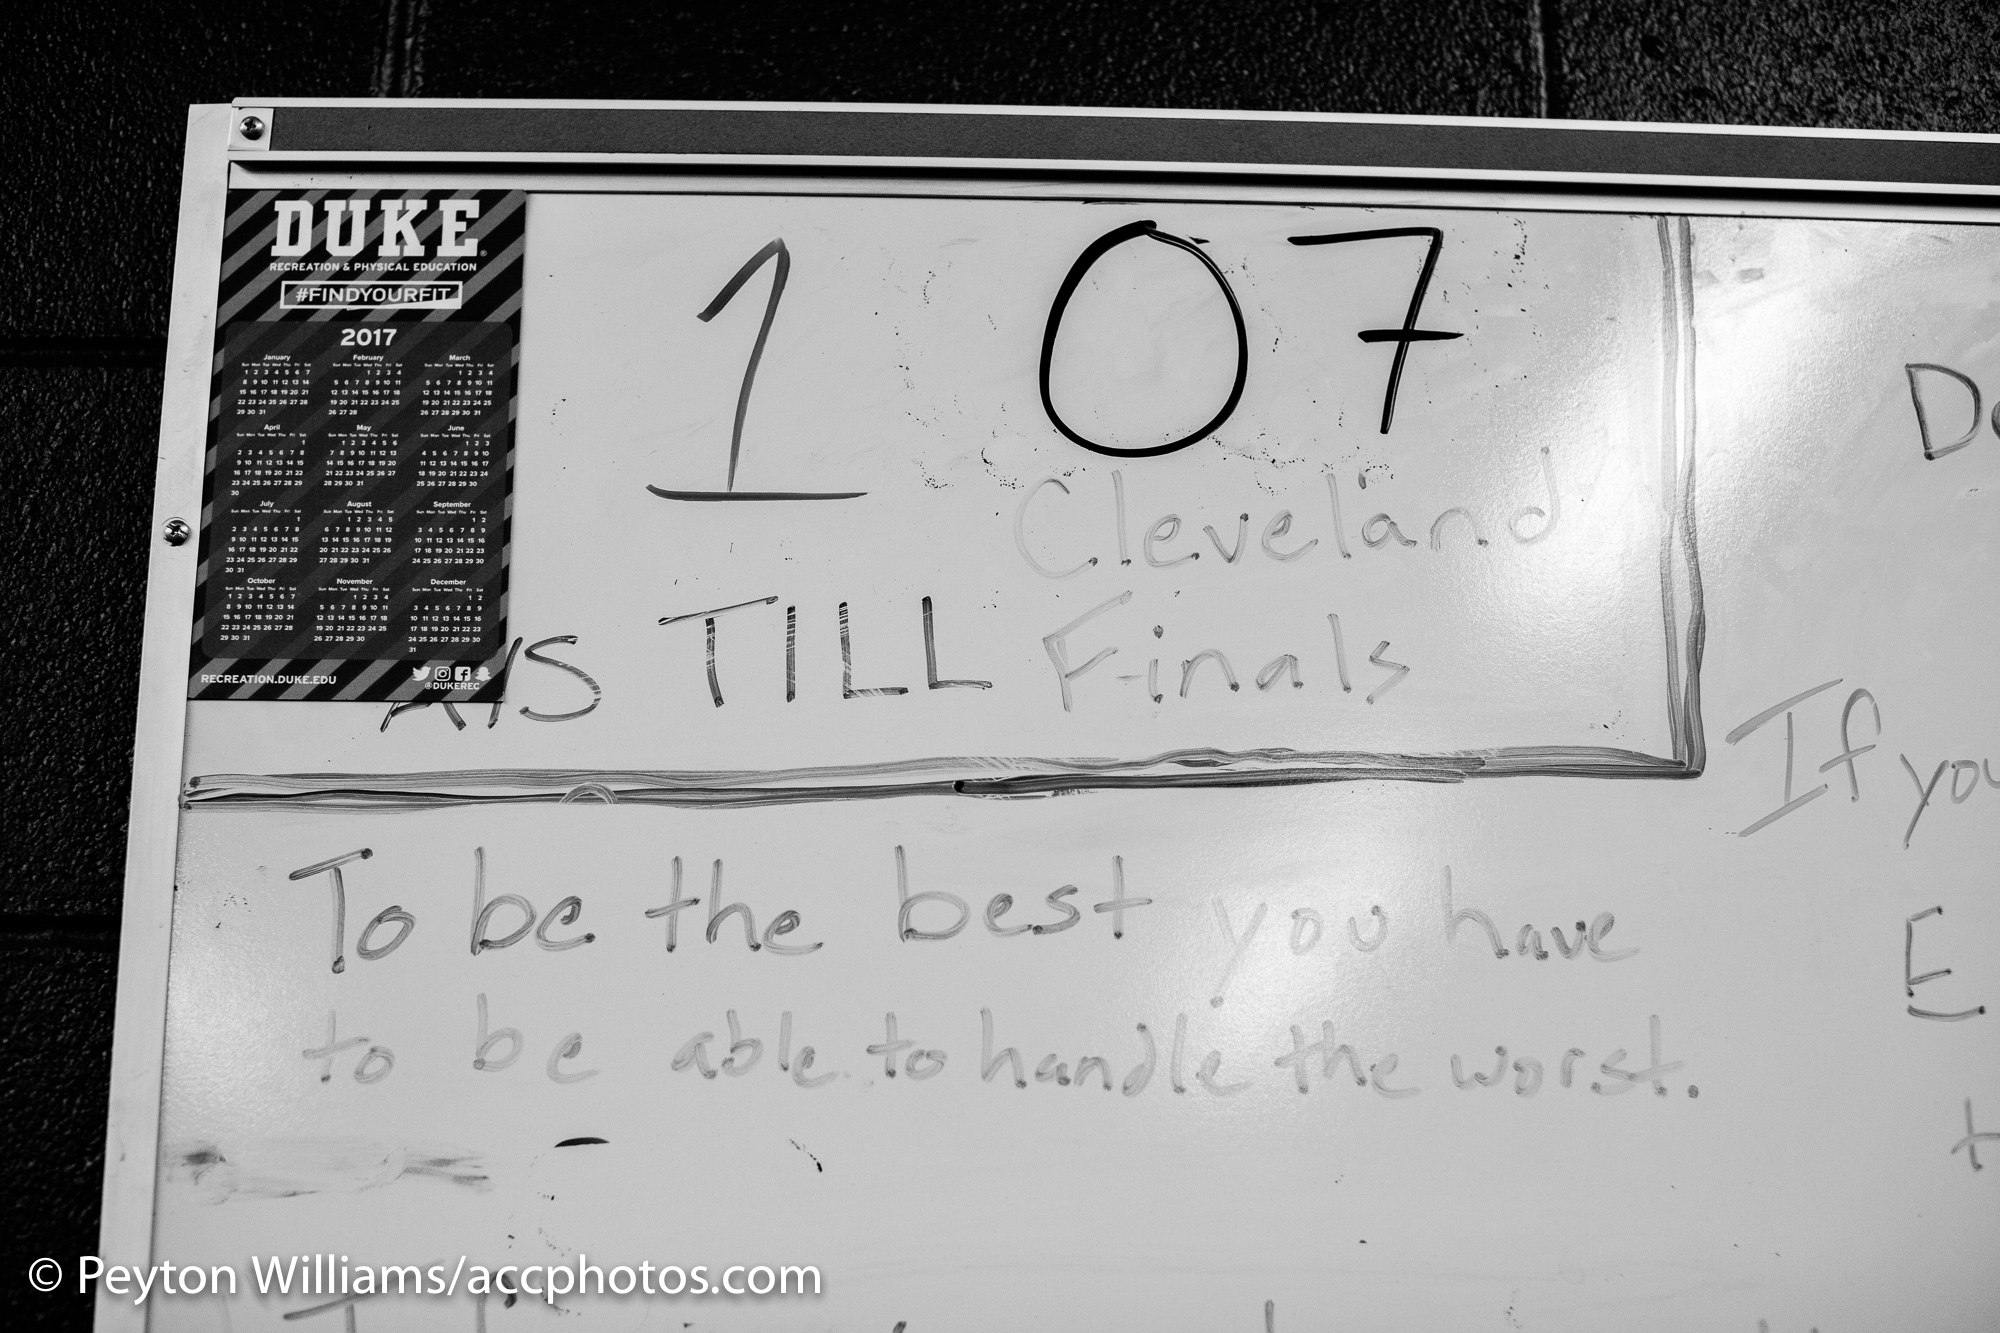 DUKE
RECREATION & PHYSICAL EDUCATION
#FINDYOURFIT
2017
January February March
Sun Mon Tue Wed Thu Fri Sat Sun Mon Tue Wed Thu Fri Sat Sun Mon Tue Wed Thu Fri Sat
1 2 3 4 5 6 7 1 2 3 4 1 2 3 4
8 9 10 11 12 13 14 5 6 7 8 9 10 11 5 6 7 8 9 10 11
15 16 17 18 19 20 21 12 13 14 15 16 17 18 12 13 14 15 16 17 18
22 23 24 25 26 27 28 19 20 21 22 23 24 25 19 20 21 22 23 24 25
29 30 31 26 27 28 26 27 28 29 30 31
April May June
Sun Mon Tue Wed Thu Fri Sat Sun Mon Tue Wed Thu Fri Sat Sun Mon Tue Wed Thu Fri Sat
1 1 2 3 4 5 6 1 2 3
2 3 4 5 6 7 8 7 8 9 10 11 12 13 4 5 6 7 8 9 10
9 10 11 12 13 14 15 14 15 16 17 18 19 20 11 12 13 14 15 16 17
16 17 18 19 20 21 22 21 22 23 24 25 26 27 18 19 20 21 22 23 24
23 24 25 26 27 28 29 28 29 30 31 25 26 27 28 29 30
30
July August September
Sun Mon Tue Wed Thu Fri Sat Sun Mon Tue Wed Thu Fri Sat Sun Mon Tue Wed Thu Fri Sat
1 1 2 3 4 5 1 2
2 3 4 5 6 7 8 6 7 8 9 10 11 12 3 4 5 6 7 8 9
9 10 11 12 13 14 15 13 14 15 16 17 18 19 10 11 12 13 14 15 16
16 17 18 19 20 21 22 20 21 22 23 24 25 26 17 18 19 20 21 22 23
23 24 25 26 27 28 29 27 28 29 30 31 24 25 26 27 28 29 30
30 31
October November December
Sun Mon Tue Wed Thu Fri Sat Sun Mon Tue Wed Thu Fri Sat Sun Mon Tue Wed Thu Fri Sat
1 2 3 4 5 6 7 1 2 3 4 1 2
8 9 10 11 12 13 14 5 6 7 8 9 10 11 3 4 5 6 7 8 9
15 16 17 18 19 20 21 12 13 14 15 16 17 18 10 11 12 13 14 15 16
22 23 24 25 26 27 28 19 20 21 22 23 24 25 17 18 19 20 21 22 23
29 30 31 26 27 28 29 30 24 25 26 27 28 29 30
31
RECREATION.DUKE.EDU
@DUKEREC
1 07
Cleveland
AYS TILL Finals
If you
To be the best you have
to be able to handle the worst.
© Peyton Williams/accphotos.com